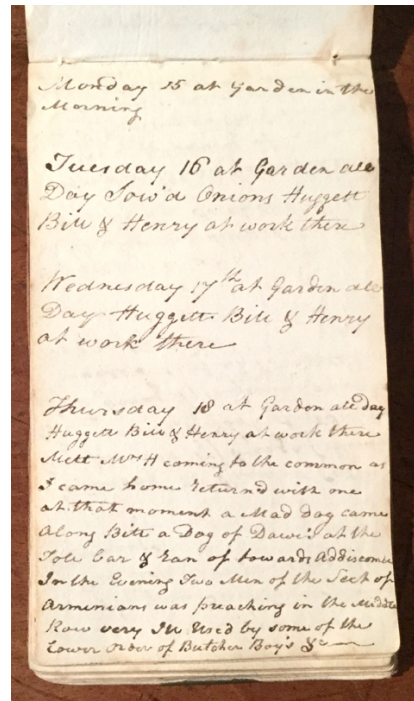 Monday 15 at Garden in the
Morning
Tuesday 16 at Garden all
Day Sow'd Onions Huggett
Bill & Henry at work there
Wednesday 17th at Garden all
Day Huggett Bill & Henry
at work there
Thursday 18 at Garden all day
Huggett Bill & Henry at work there
Mett Mrs H coming to the common as
I came home returnd with one
at that moment a Mad Dog came
along Bitt a Dog of Dawes at the
Tole bar & Ran of towards Addiscombe
In the Evening Two Men of the Sect of
Armenians was preaching in the Middle
Row very Ill Used by some of the
Lower Order of Butcher Boy's &c